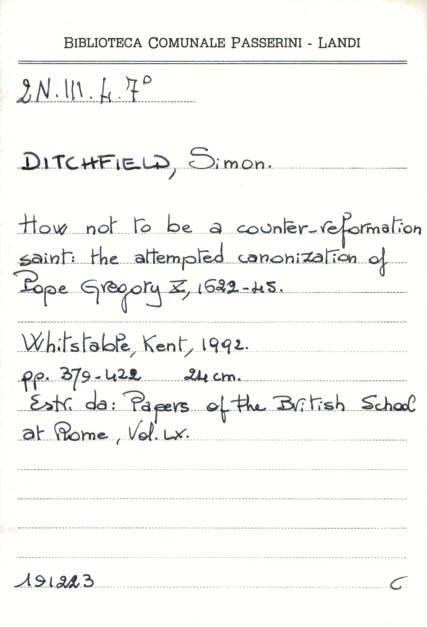 BIBLIOTECA COMUNALE PASSERINI - LANDI
2N.III.4.7°
DITCHFIELD, Simon.
How not to be a counter-reformation
saint: the attempted canonization of
Pope Gregory X, 1622-45.
Whitstable, Kent, 1992.
pp. 379-422 24 cm.
Estr. da: Papers of the British School
at Rome, Vol. LX.
191223 C